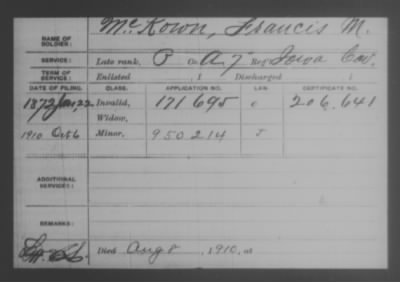 NAME OF SOLDIER: McKown, Francis M.
SERVICE: Late rank, P Co. A, 7 Reg't Iowa Cav.
TERM OF SERVICE: Enlisted , 1 Discharged , 1
DATE OF FILING. CLASS. APPLICATION NO. LAW. CERTIFICATE NO.
1872 Jan, 22 Invalid, 171695 206.641
Widow,
1910 Oct 6 Minor, 950214
ADDITIONAL SERVICES:
REMARKS:
Died Aug 8, 1910, at